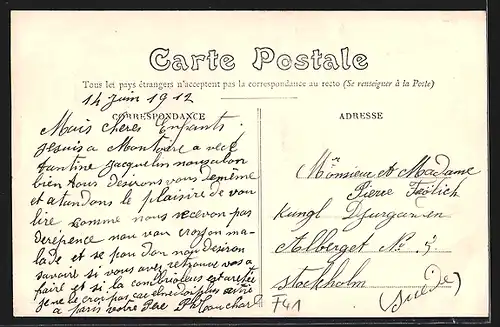 Carte Postale
Tous les pays étrangers n'acceptent pas la correspondance au recto (Se renseigner à la Poste)
14 Juin 1912
CORRESPONDANCE
Mais cheres Enfants
jesuis a Montoire a vec
tantine jacquelin nous
bien tous désirons demême
et atandons le plaisire de vou
lire comme nous recevon pas
derépence nou vou croyon ma-
lade et se pandan nou désiron
savoire si vous avez retrouvé
faire et si la
je ne le croi pas
a paris votre Père
ADRESSE
Monsieur et Madame
Pierre
Kungl Djurgarden
Alberget No 5
Stockholm
(Suède)
F41